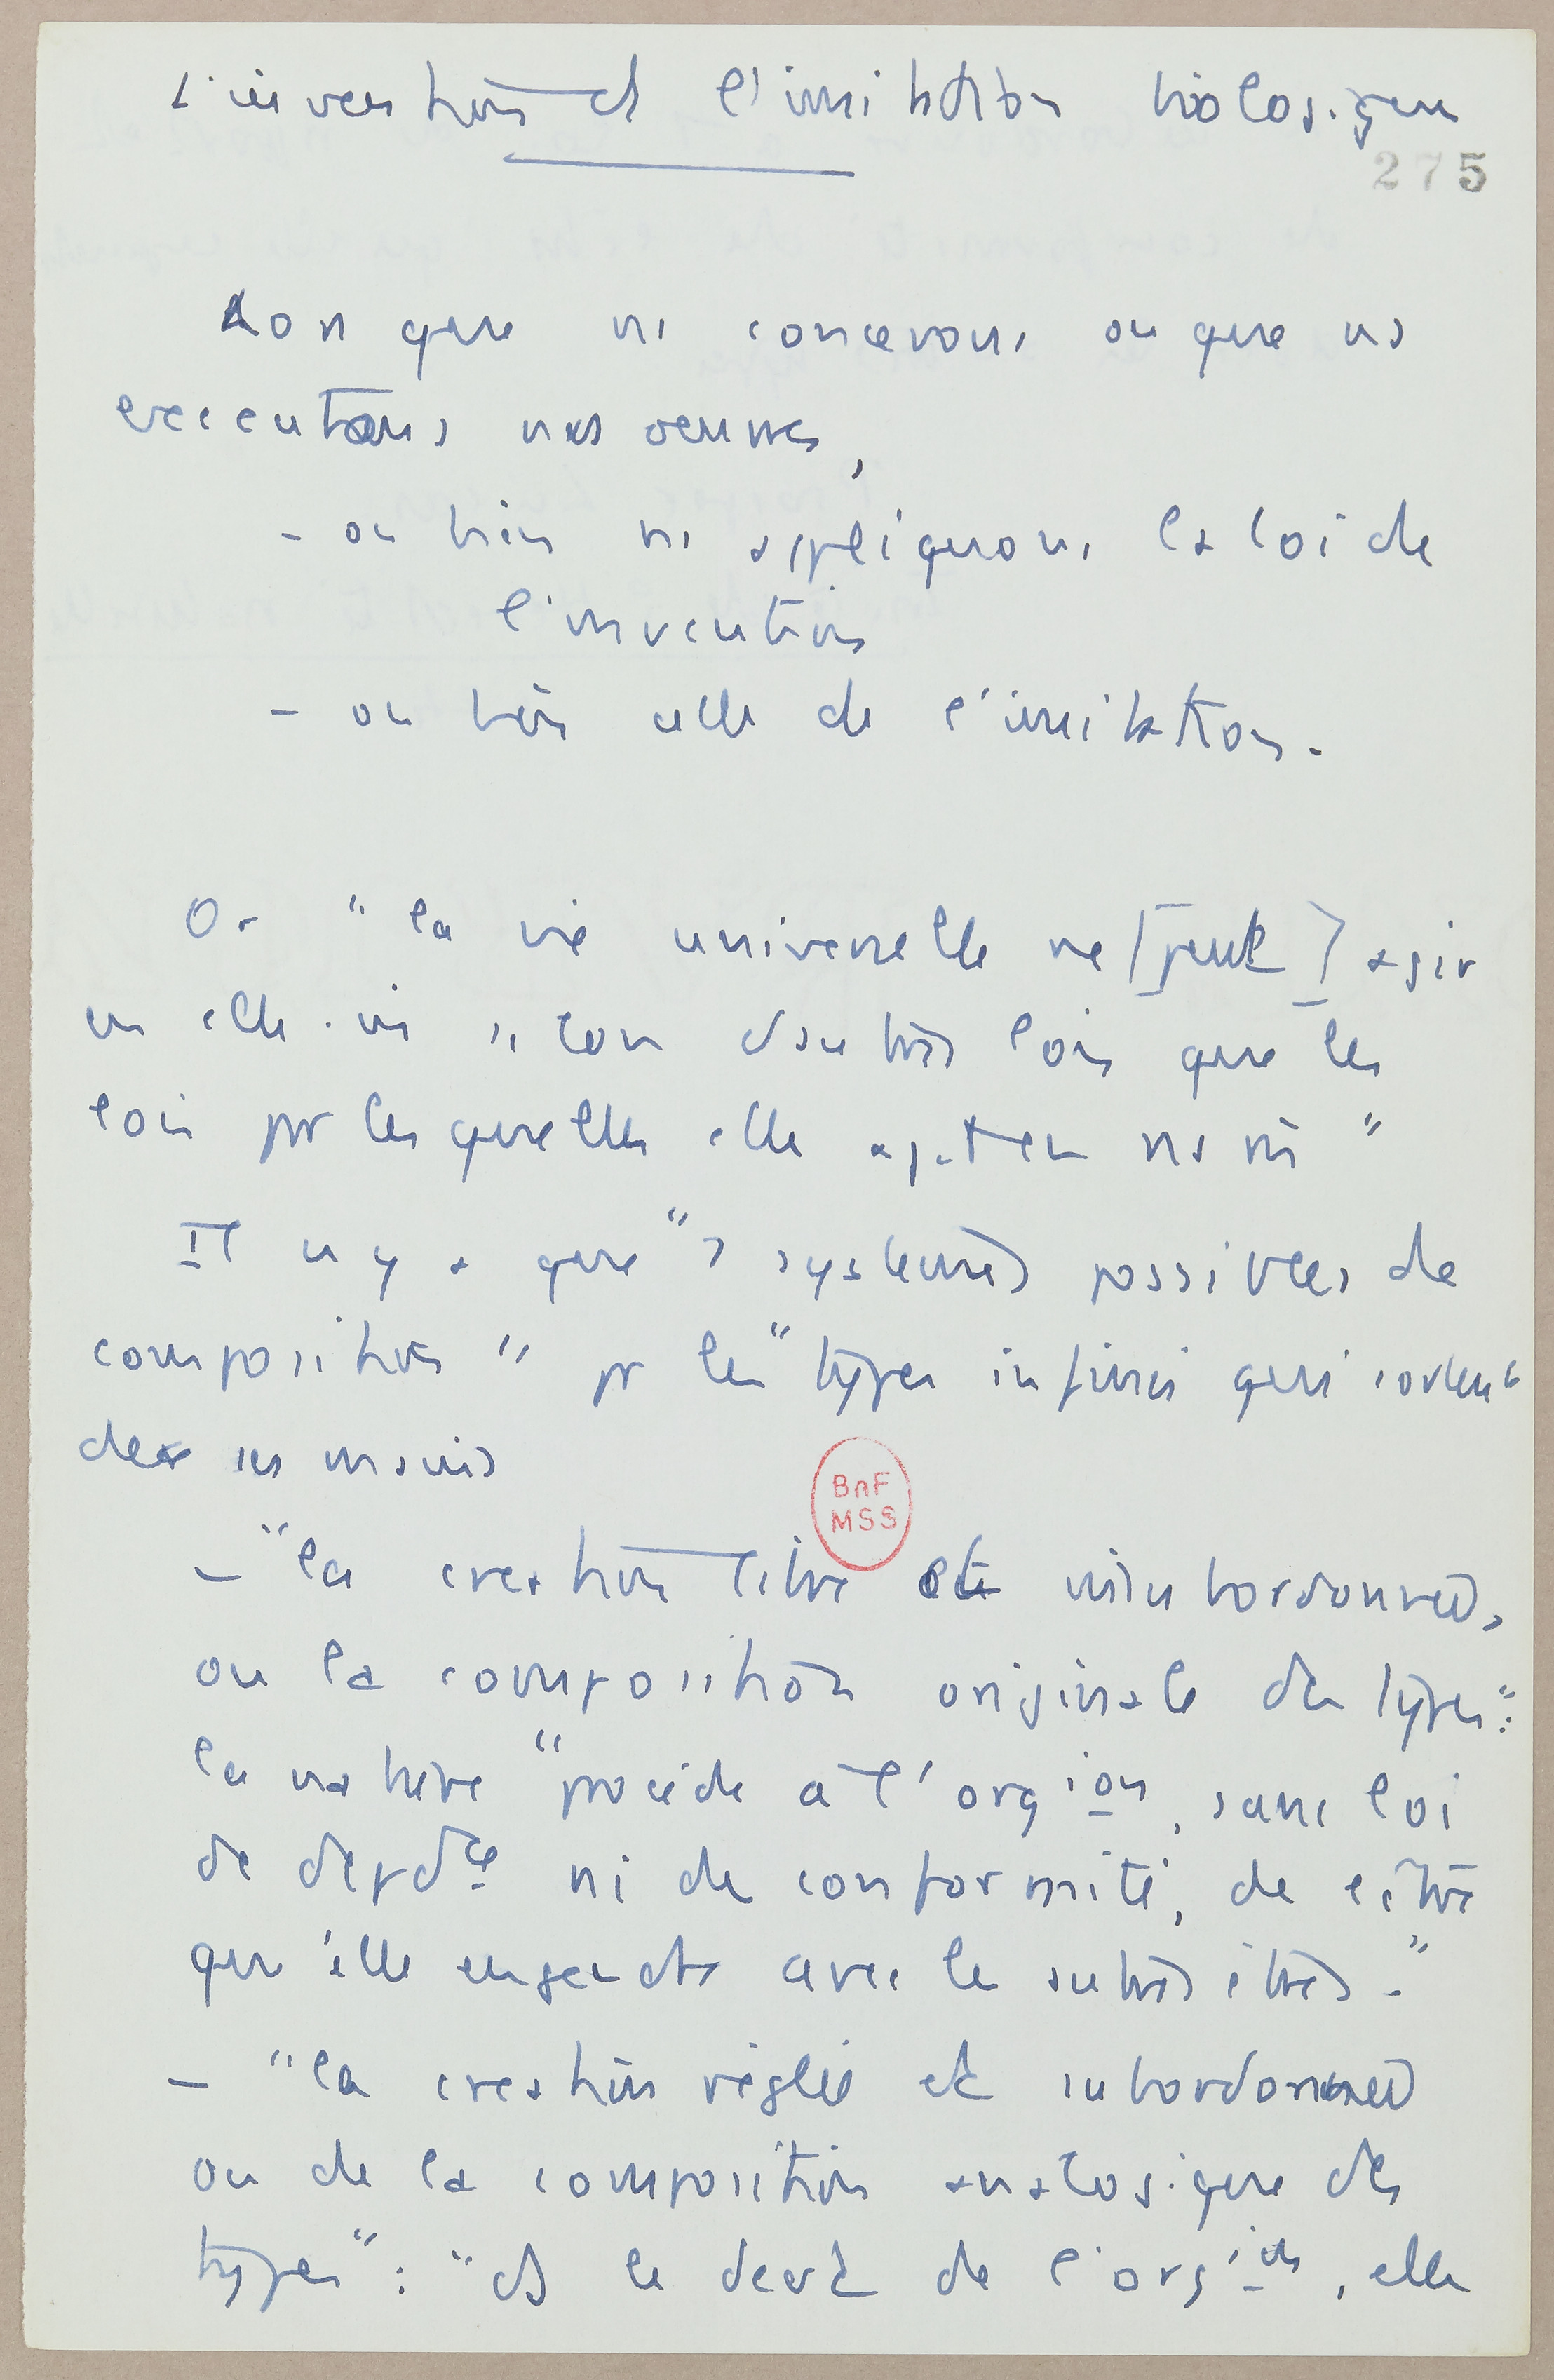 L'invention et l'imitation biologique
275
Lors que ns concevons ou que ns
executons nos oeuvres,
- ou bien ns appliquons la loi de
l'invention
- ou bien celle de l'imitation.
Or "la vie universelle ne [peut] agir
en elle-m selon d'autres lois que les
lois par lesquelles elle agit en ns m"
Il n'y a que "2 systemes possibles de
composition" pr les "types infinis qui sortent
de ses mains
- "la creation libre et insubordonnee,
ou la composition originale des types":
la nature "procede à l'orgion, sans loi
de depdce ni de conformité, de l'être
qu'elle engendre avec les autres êtres."
- "la creation réglée et subordonnee
ou de la composition analogique des
types": "et le devt de l'orgion, elle
BnF
MSS